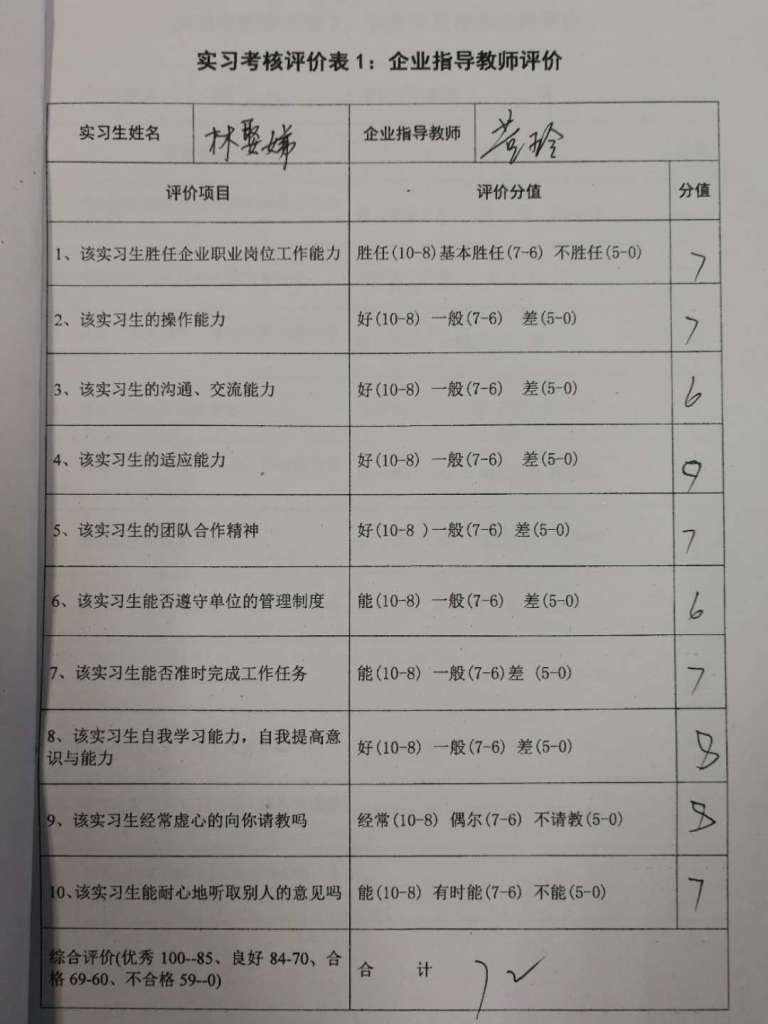 实习考核评价表1：企业指导教师评价
实习生姓名 林娶娣 企业指导教师 玲
评价项目 评价分值 分值
1、该实习生胜任企业职业岗位工作能力 胜任(10-8)基本胜任(7-6) 不胜任(5-0) 7
2、该实习生的操作能力 好(10-8) 一般(7-6) 差(5-0) 7
3、该实习生的沟通、交流能力 好(10-8) 一般(7-6) 差(5-0) 6
4、该实习生的适应能力 好(10-8) 一般(7-6) 差(5-0) 9
5、该实习生的团队合作精神 好(10-8 )一般(7-6) 差(5-0) 7
6、该实习生能否遵守单位的管理制度 能(10-8) 一般(7-6) 差(5-0) 6
7、该实习生能否准时完成工作任务 能(10-8) 一般(7-6)差 (5-0) 7
8、该实习生自我学习能力，自我提高意
识与能力 好(10-8) 一般(7-6) 差(5-0) 8
9、该实习生经常虚心的向你请教吗 经常(10-8) 偶尔(7-6) 不请教(5-0) 8
10、该实习生能耐心地听取别人的意见吗 能(10-8) 有时能(7-6) 不能(5-0) 7
综合评价(优秀 100--85、良好 84-70、合
格 69-60、不合格 59--0) 合 计 72